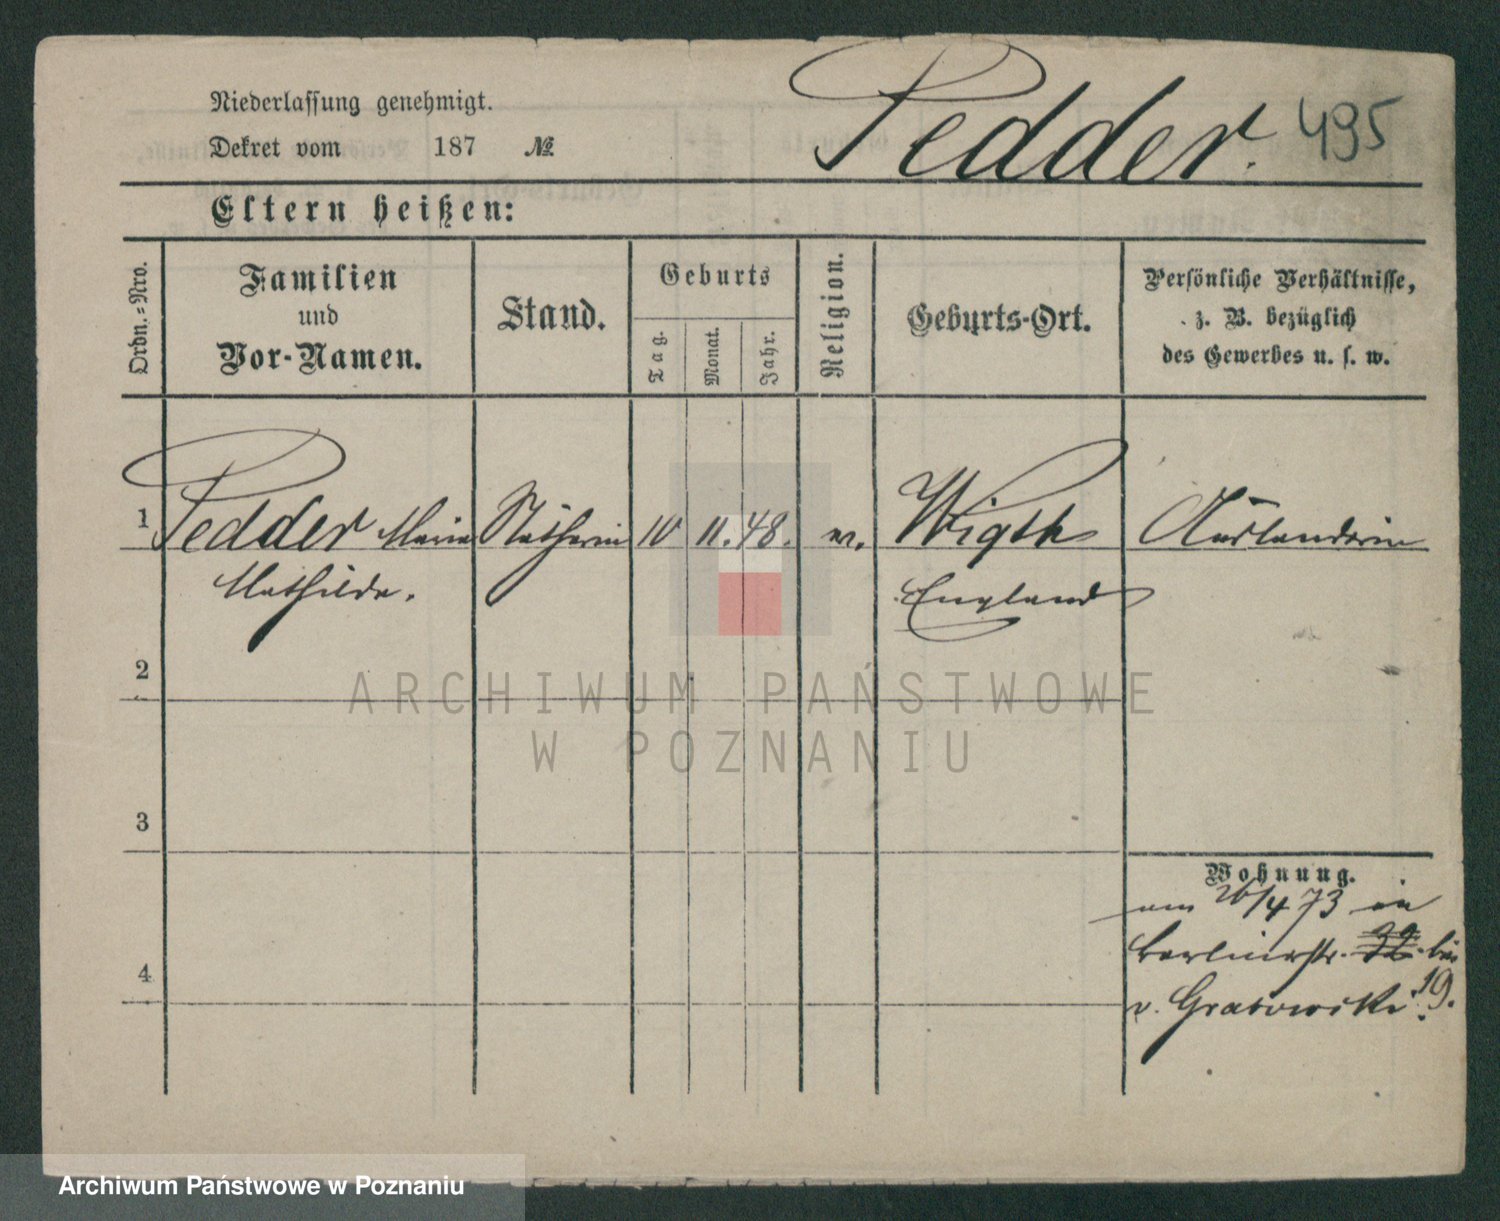 Niederlassung genehmigt.
Dekret vom 187 №
Pedder. 495
Eltern heißen:
Ordn.=Nro.
Familien
und
Vor-Namen.
Stand.
Geburts
Tag.
Monat.
Jahr.
Religion.
Geburts-Ort.
Persönliche Verhältnisse,
z. B. bezüglich
des Gewerbes u. s. w.
1 Pedder Maria 11. 48. Wigth Ausländerin
Mathilde. England
2
ARCHIWUM PAŃSTWOWE
W POZNANIU
3
Wohnung.
am 26/4 73 in
Berlinerstr. bei
v. Grabowski 19.
4
Archiwum Państwowe w Poznaniu